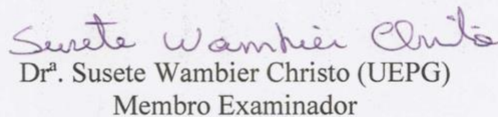 Susete Wambier Christo
Drª. Susete Wambier Christo (UEPG)
Membro Examinador